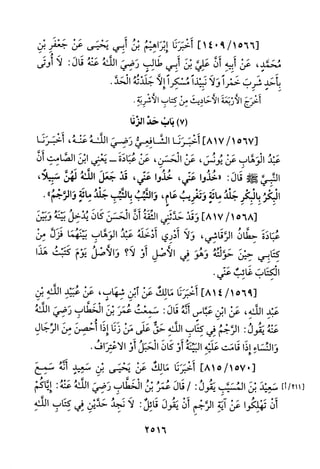 [١٤٠٩/١٥٦٦] أَخْبَرَنَا إِبْرَاهِيمُ بْنُ أَبِي يَحْيَى عَنْ جَعْفَرِ بْنِ
مُحَمَّدٍ، عَنْ أَبِيهِ أَنَّ عَلِيَّ بْنَ أَبِي طَالِبٍ رَضِيَ اللَّهُ عَنْهُ قَالَ: لَا أُوتَى
بِأَحَدٍ شَرِبَ خَمْراً وَلَا نَبِيْذاً مُسْكِراً إِلَّا جَلَدْتُهُ الْحَدَّ.
أَخْرَجَ الْأَرْبَعَةَ الْأَحَادِيثَ مِنْ كِتَابِ الْأَشْرِبَةِ.
(٧) بَابُ حَدِّ الزِّنَا
[٨١٧/١٥٦٧] أَخْبَرَنَا الشَّافِعِيُّ رَضِيَ اللَّهُ عَنْهُ، أَخْبَرَنَا
عَبْدُ الْوَهَّابِ عَنْ يُونُسَ، عَنْ الْحَسَنِ، عَنْ عُبَادَةَ ـ يَعْنِي ابْنَ الصَّامِتِ أَنَّ
النَّبِيَّ ﷺ قَالَ: «خُذُوا عَنِّي، خُذُوا عَنِّي، قَدْ جَعَلَ اللَّهُ لَهُنَّ سَبِيلاً،
الْبِكْرُ بِالْبِكْرِ جَلْدُ مِائَةٍ وَتَغْرِيبُ عَامٍ، وَالثَّيِّبُ بِالثَّيِّبِ جَلْدُ مِائَةٍ وَالرَّجْمُ».
[٨١٧/١٥٦٨] وَقَدْ حَدَّثَنِي الثِّقَةُ أَنَّ الْحَسَنَ كَانَ يُدْخِلُ بَيْنَهُ وَبَيْنَ
عُبَادَةَ حِطَّانَ الرَّقَاشِي، وَلَا أَدْرِي أَدْخَلَهُ عَبْدُ الْوَهَّابِ بَيْنَهُمَا فَزَلَّ مِنْ
كِتَابِي حِينَ حَوَّلْتُهُ وَهُوَ فِي الْأَصْلِ أَوْ لَا؟ وَالْأَصْلُ يَوْمَ كَتَبْتُ هَذَا
الْكِتَابَ غَائِبٌ عَنِّي.
[٨١٤/١٥٦٩] أَخْبَرَنَا مَالِكٌ عَنْ ابْنِ شِهَابٍ، عَنْ عُبَيْدِ اللَّهِ بْنِ
عَبْدِ اللَّهِ، عَنْ ابْنِ عَبَّاسٍ أَنَّهُ قَالَ: سَمِعْتُ عُمَرَ بْنَ الْخَطَّابِ رَضِيَ اللَّهُ
عَنْهُ يَقُولُ: الرَّجْمُ فِي كِتَابِ اللَّهِ حَقٌّ عَلَى مَنْ زَنَا إِذَا أُحْصِنَ مِنَ الرِّجَالِ
وَالنِّسَاءِ إِذَا قَامَتْ عَلَيْهِ الْبَيِّنَةُ أَوْ كَانَ الْحَبَلُ أَوْ الِاعْتِرَافُ.
[٨١٥/١٥٧٠] أَخْبَرَنَا مَالِكٌ عَنْ يَحْيَى بْنِ سَعِيدٍ أَنَّهُ سَمِعَ
سَعِيْدَ بْنَ الْمُسَيَّبِ يَقُولُ: / قَالَ عُمَرُ بْنُ الْخَطَّابِ رَضِيَ اللَّهُ عَنْهُ: إِيَّاكُمْ [٢١١/أ]
أَنْ تَهْلِكُوا عَنْ آيَةِ الرَّجْمِ أَنْ يَقُولَ قَائِلٌ: لَا نَجِدُ حَدَّيْنِ فِي كِتَابِ اللَّهِ
٢٥١٦